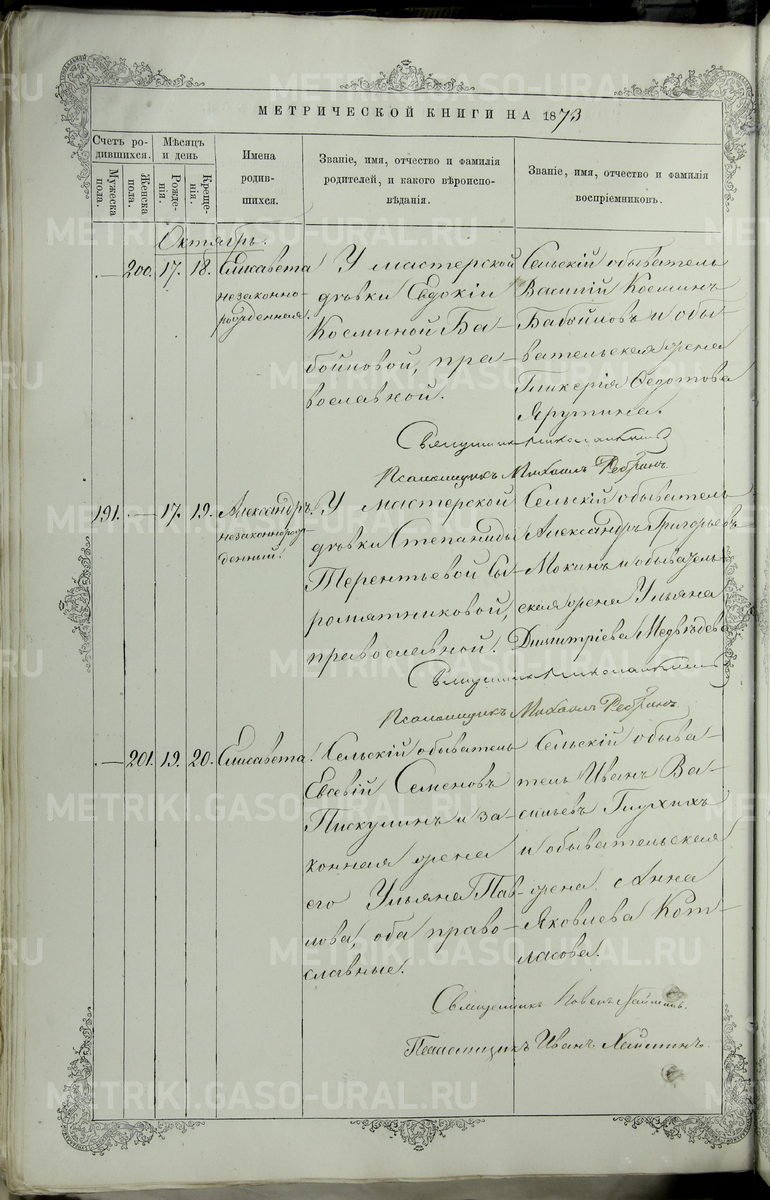 МЕТРИЧЕСКОЙ КНИГИ НА 1873
Счетъ ро-
дившихся.
Мѣсяцъ
и день
Мужеска
пола.
Женска
пола.
Рожде-
нія.
Креще-
нія.
Имена
родив-
шихся.
Званіе, имя, отчество и фамилія
родителей, и какого вѣроиспо-
вѣданія.
Званіе, имя, отчество и фамилія
воспріемниковъ.
Октябрь.
.— 200. 17. 18. Елисавета
незаконно-
рожденная.
У мастерской
дѣвки Евдокіи
Косминой Ба-
бойновой, пра-
вославной.
Сельскій обыватель
Василій Косминъ
Бабойновъ и обы-
вательская жена
Гликерія Федотова
Ярутина.
Священникъ
Псаломщикъ Михаилъ Ребринъ
191. .— 17. 19. Александръ.
незаконнорож-
денный.
У мастерской
дѣвки Степаниды
Терентьевой Сы-
ромятниковой,
православной.
Сельскій обыватель
Александръ Григорьевъ
Мокинъ и обыватель-
ская жена Ульяна
Димитріева Медвѣдева
Священникъ
Псаломщикъ Михаилъ Ребринъ
.— 201. 19. 20. Елисавета.
Сельскій обыватель
Евсевій Семеновъ
Пискулинъ и за-
конная жена
его Ульяна Пав-
лова, оба право-
славные.
Сельскій обыва-
тель Иванъ Ва-
сильевъ Глухихъ
и обывательская
жена Анна
Яковлева Кот-
ласова.
Священникъ
Псаломщикъ Иванъ
METRIKI.GASO-URAL.RU